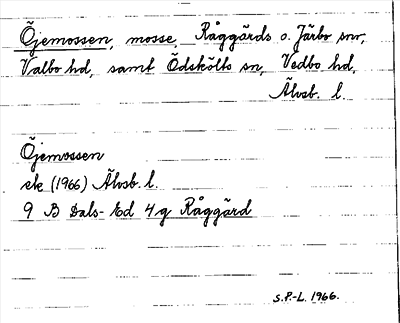 Öjemossen, mosse, Råggärds o. Järbo snr,
Valbo hd, samt Ödskölts sn, Vedbo hd,
Älvsb. l.
Öjemossen
ek (1966) Älvsb. l.
9 B Dals-Ed 4g Råggärd
S.P.-L. 1966.